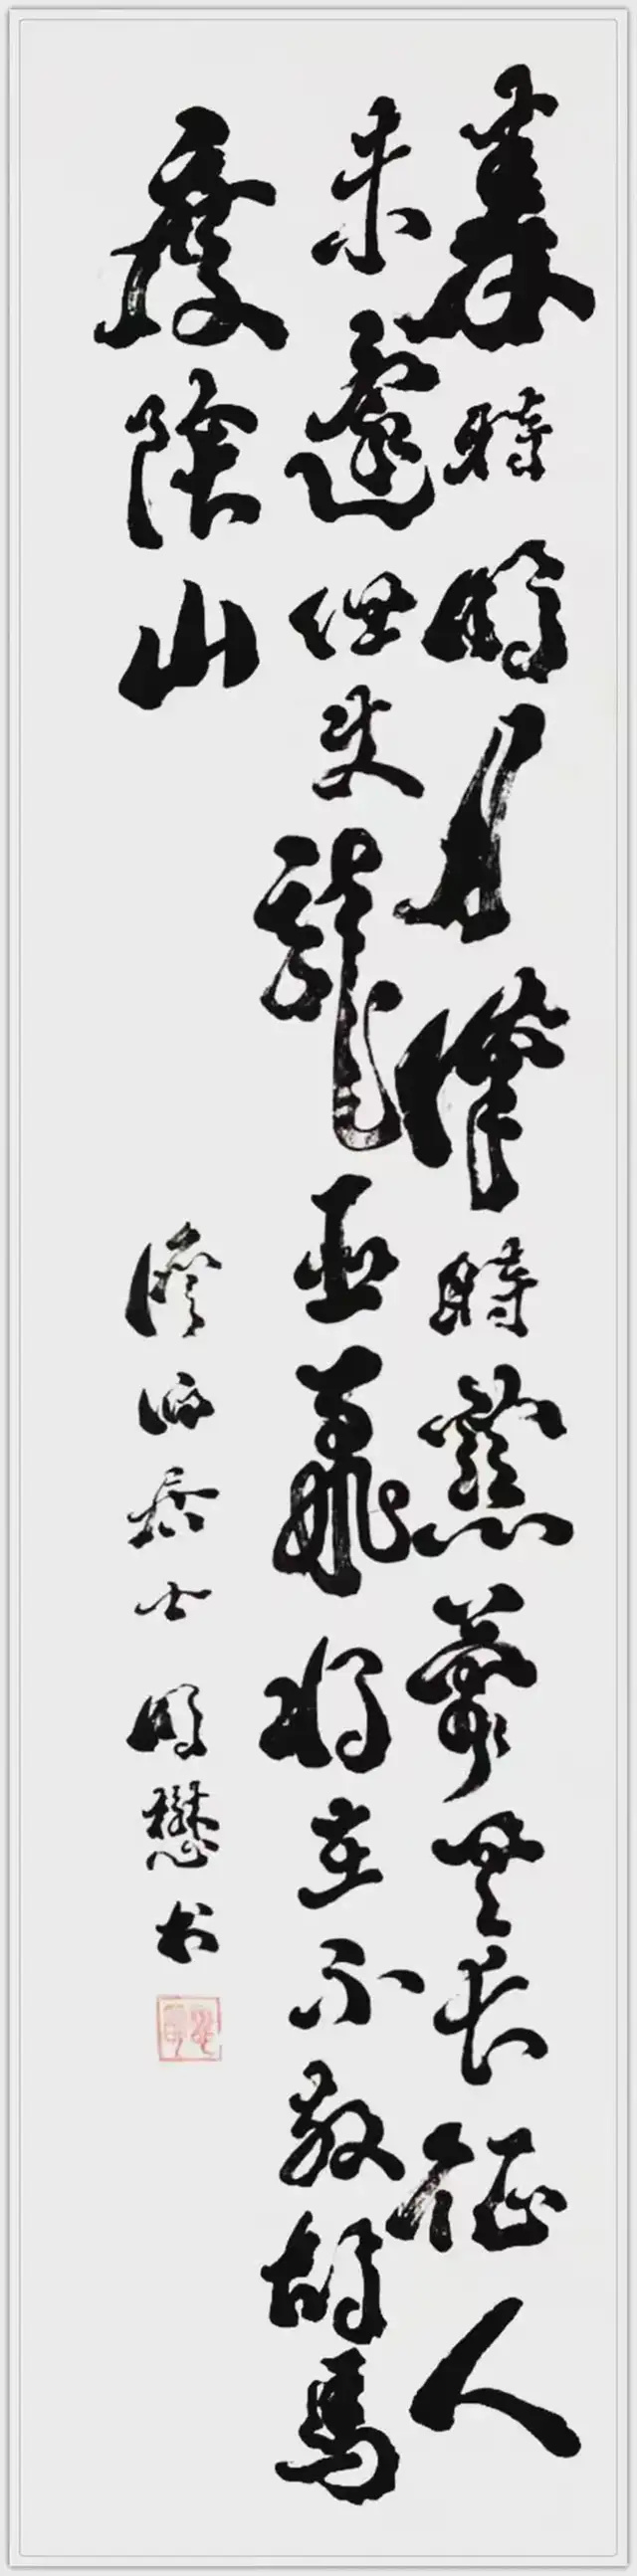 秦時明月漢時關萬里長征人
未還但使龍城飛將在不教胡馬
度陰山
澹泊居士明懋书